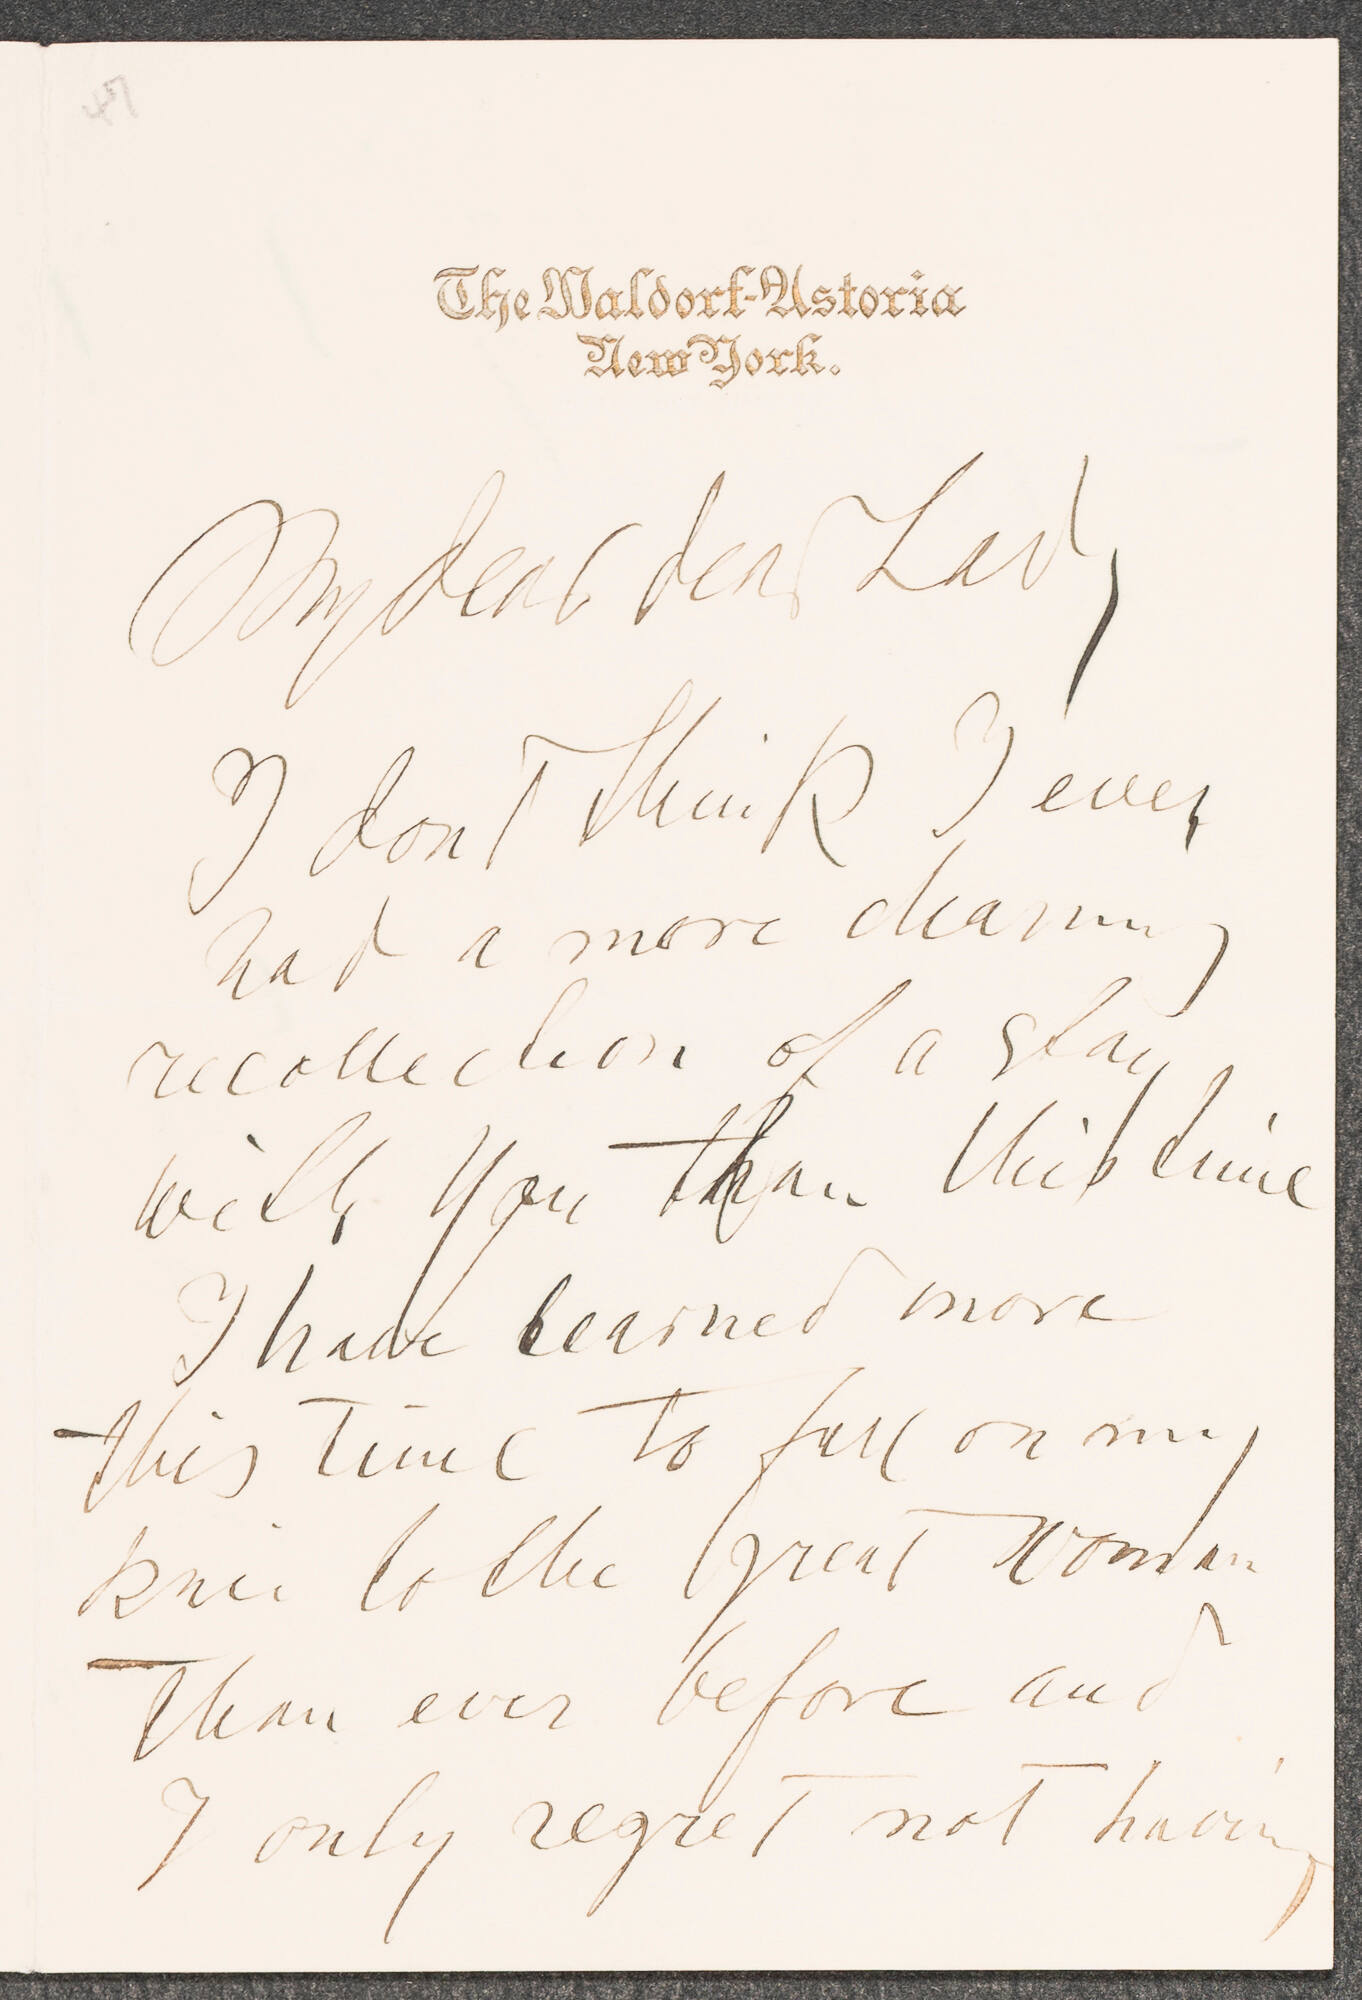 47
The Waldorf-Astoria
New York.
My dear dear Lady
I dont think I ever
had a more charming
recollection of a stay
with you than this time
I have learned more
this time to fall on my
knee to the great woman
than ever before and
I only regret not having